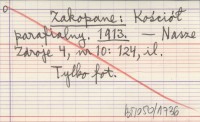 Zakopane: Kościół
parafialny. 1913. — Nasze
Zdroje 4, na 10: 124, il.
Tylko fot.